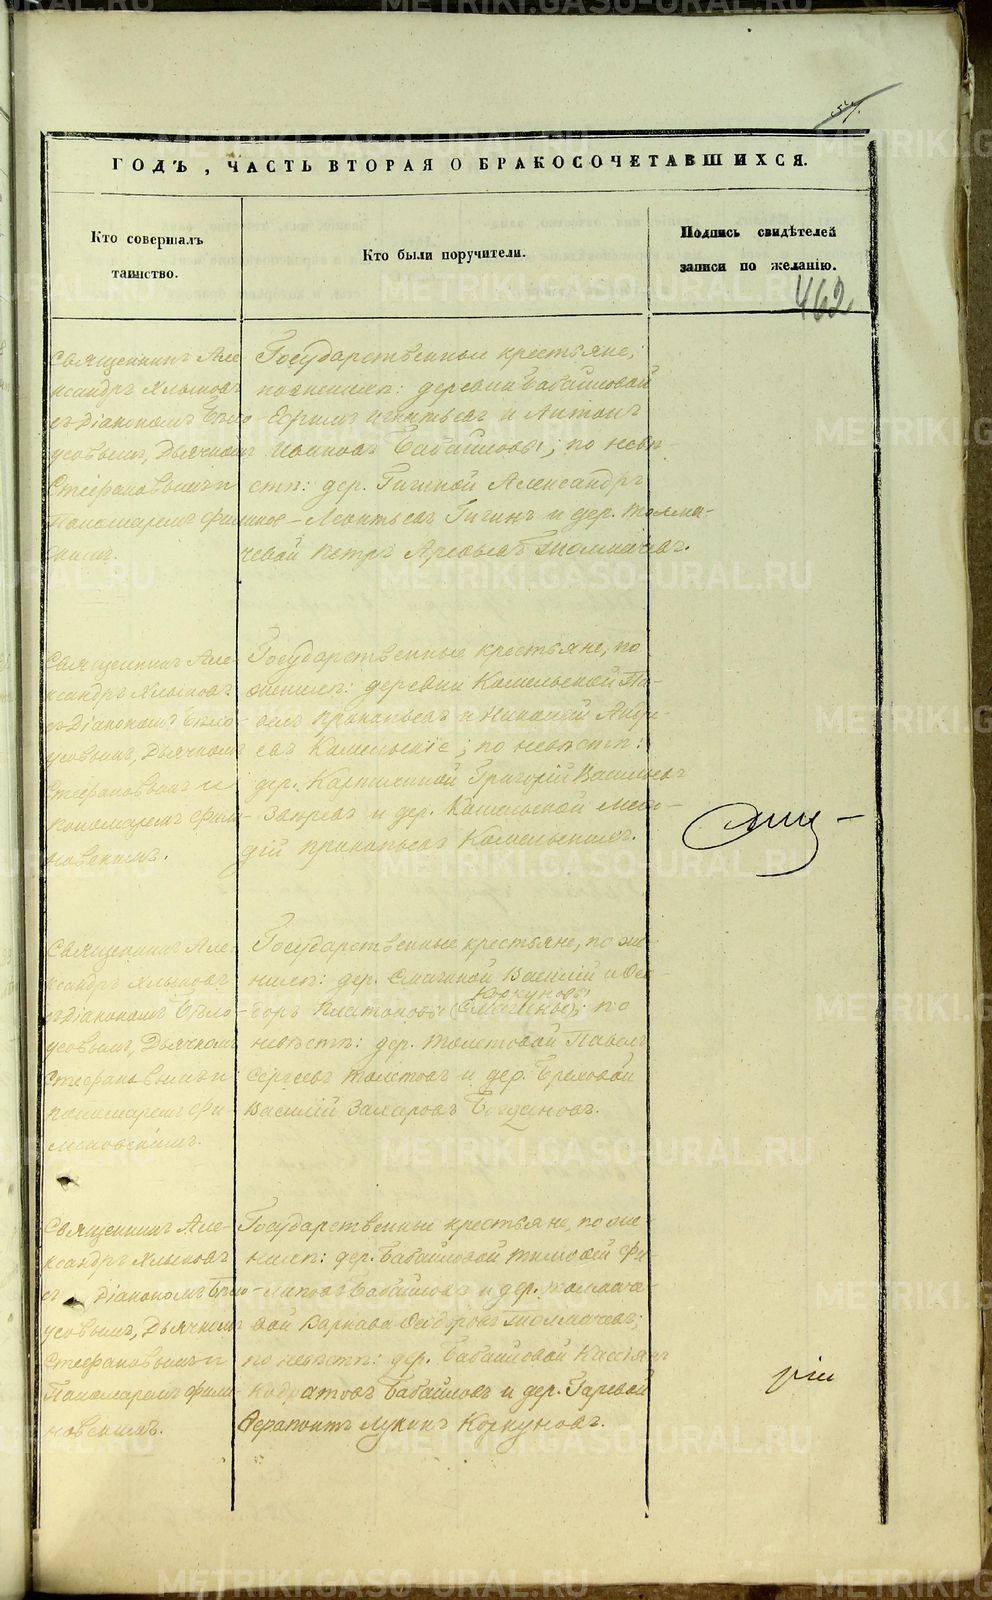 57.
ГОДЪ, ЧАСТЬ ВТОРАЯ О БРАКОСОЧЕТАВШИХСЯ.
Кто совершалъ
таинство.
Кто были поручители.
Подпись свидѣтелей
записи по желанію.
462
Священникъ Але-
ксандръ Хлыновъ
съ Діакономъ Бѣло-
усовымъ, Дьячкомъ
Стефановымъ и
Пономаремъ Филимо-
Государственные крестьяне,
по женихѣ: деревни Бабайловой
Ефимъ Игнатьевъ и Антонъ
Бабайловы; по невѣ-
стѣ: дер. Гигиной Александръ
Леонтьевъ Гигинъ и дер. Толма-
чевой Петръ Толмачевъ.
Священникъ Але-
ксандръ Хлыновъ
съ Діакономъ Бѣло-
усовымъ, Дьячкомъ
Стефановымъ и
пономаремъ Фили-
моновскимъ.
Государственные крестьяне, по
женихѣ: деревни Камельской Па-
велъ Прокопьевъ и Николай Андре-
евъ Камельскіе; по невѣстѣ:
дер. Григорій Васильевъ
и дер. Камельской Меѳо-
дій Прокопьевъ Камельскихъ.
Священникъ Але-
ксандръ Хлыновъ
съ Діакономъ Бѣло-
усовымъ, Дьячкомъ
Стефановымъ и
пономаремъ Фи-
лимоновскимъ.
Государственные крестьяне, по же-
нихѣ: дер. Смагиной Василій и Ѳео-
Коркуновы
доръ Платоновы (Смагины); по
невѣстѣ: дер. Толстовой Павелъ
Сергѣевъ Толстовъ и дер. Бреховой
Василій Захаровъ Богдановъ.
Священникъ Але-
ксандръ Хлыновъ
съ Діакономъ Бѣло-
усовымъ, Дьячкомъ
Стефановымъ и
Пономаремъ Филимо-
новскимъ.
Государственные крестьяне, по же-
нихѣ: дер. Бабайловой Тимоѳей Фи-
липовъ Бабайловъ и дер. Толмаче-
вой Варнава Ѳедоровъ Толмачевъ;
по невѣстѣ: дер. Бабайловой Кассіянъ
Кодратовъ Бабайловъ и дер. Гаревой
Ѳерапонтъ Лукинъ Коркуновъ.
METRIKI.GASO-URAL.RU